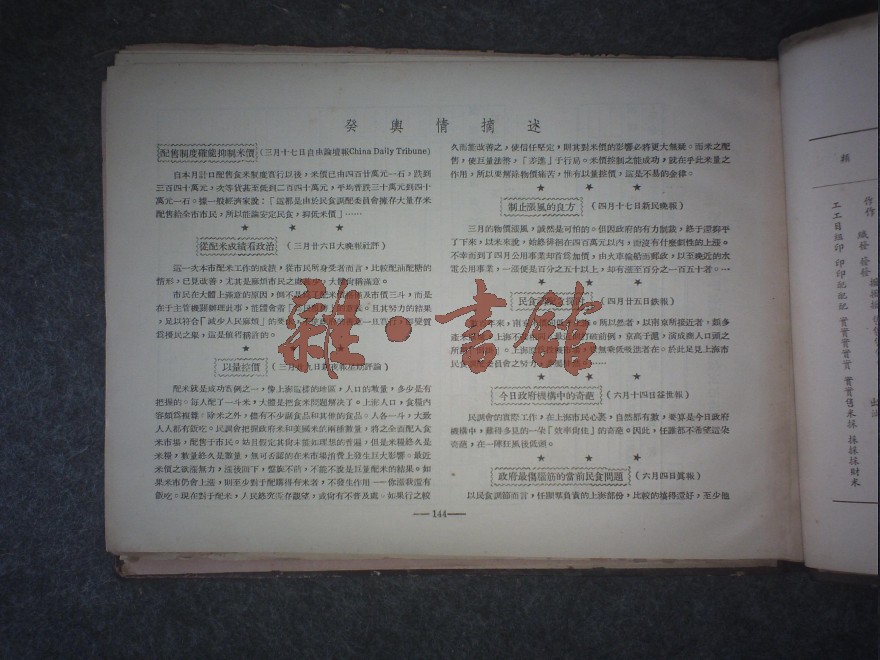 癸輿情摘述
配售制度確能抑制米價
(三月十七日自由論壇報China Daily Tribune)
自本月計口配售食米制度實行以後，米價已由四百廿萬元一石，跌到
三百四十萬元，次等貨甚至低到二百四十萬元，平均普跌三十萬元到四十
萬元一石。據一般經濟家說：「這都是由於民食調配委員會擁存大量存米
配售給全市市民，所以能論安定民食，抑低米價」……
★ ★ ★
從配米成績看政治
(三月廿六日大晚報社評)
這一次本市配米工作的成績，從市民所身受者而言，比較配油配糖的
情形，已見改善，尤其是麻煩市民之處
大體尚稱滿意。
市民在大體上滿意的原因，倒不是
及市價三斗，而是
在于主管機關辦理此事，能體會着
且其努力的結果
，足以符合「減少人民麻煩」的要
為擾民之舉，這是值得稱許的。
★
以量控價
評論)
配米就是成功舊例之一，像上海這樣的地區，人口的數量，多少是有
把握的。每人配了一斗米，大體是把食米問題解決了。上海人口，食糧內
容頗為複雜。除米之外，儘有不少副食品和其他的食品。人各一斗，大致
人人都有飯吃。民調會把握政府米和美國米的兩種數量，將之全面配入食
米市場，配售于市民。姑且假定其尚未能如理想的普遍，但是米糧終久是
米糧，數量終久是數量，無可否認的在米市場消費上發生巨大影響。最近
米價之欲漲無力，漲後回下，盤旋不前，不能不說是以量配米的結果。如
果米市仍會上漲，則至少對于配購得有米者，不發生作用——你漲我還有
飯吃。現在對于配米，人民終究還存觀望，或尚有不普及處。如果行之較
久而能改善之，使信任堅定，則其對米價的影響必將更大無疑。而米之配
售，使巨量法幣，「亦進」于行局。米價控制之能成功，就在乎此米量之
作用，所以要解除物價痛苦，惟有以量控價，這是不易的金律。
★ ★ ★
制止漲風的良方
(四月十七日新民晚報)
三月的物價漲風，誠然是可怕的。但因政府的有力制裁，終于還抑平
了下來，以米來說，始終徘徊在四百萬元以內，而沒有什麼劇性的上漲。
不幸而到了四月公用事業却首為加價，由火車輪船而郵政，以至晚近的水
電公用事業，一漲便是百分之五十以上，却有漲至百分之一百五十者。…
★ ★ ★
民食
(四月廿五日鉄報)
來，南京
所以然者，以南京所接近者，類多
產米
上海不
，京高于滬，演成商人口頭之
所
」。上海
無乘低吸進者在。於此足見上海市
民食調配委員會之努力。
★ ★ ★
今日政府機構中的奇葩
(六月十四日益世報)
民調會的實際工作，在上海市民心裏，自然都有數，要算是今日政府
機構中，難得多見的一朵「效率尚佳」的奇葩。因此，任誰都不希望這朵
奇葩，在一陣狂風後低頭。
★ ★ ★
政府最傷腦筋的當前民食問題
(六月四日眞報)
以民食調節而言，任顯羣負責的上海部份，比較的搞得還好，至少他
—144—
雜·書館